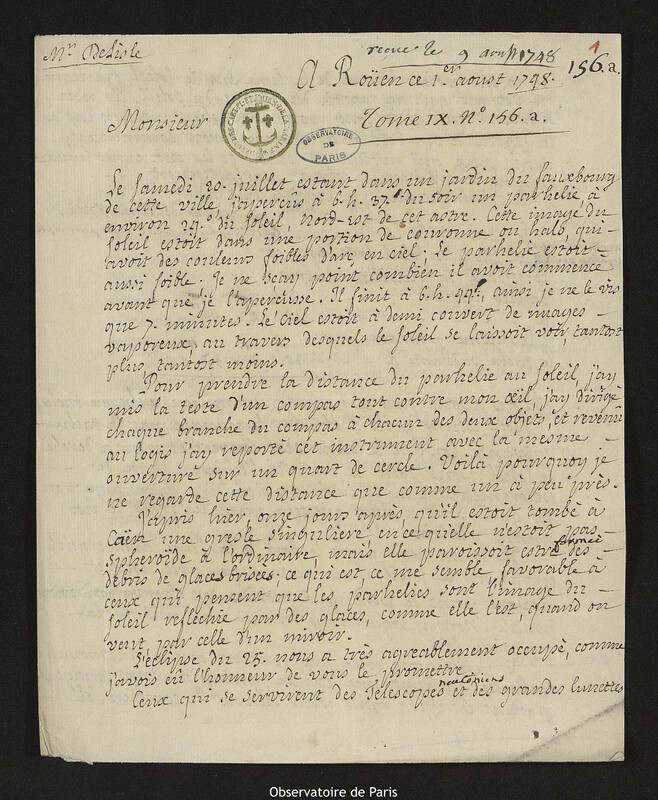 Mr. Delisle
reçue le 9 aoust 1748
1
156.a.
A Roüen ce 1.er aoust 1748.
Monsieur
Tome IX. No. 156.a.
OBSERVATOIRE
DE
PARIS
Le Samedi 20. juillet estant dans un jardin du fauxbourg
de cette ville, j'aperçûs à 6.h. 37.' du soir un parhelie, à
environ 29.° du Soleil, Nord-est de cet astre. Cette image du
Soleil estoit dans une portion de couronne ou halo, qui
avoit des couleurs foibles d'arc en ciel; Le parhelie estoit
aussi foible. Je ne sçay point combien il avoit commencé
avant que je l'aperçusse. Il finit à 6.h. 44.', ainsi je ne le vis
que 7. minutes. Le Ciel estoit à demi couvert de nuages
vaporeux, au travers desquels le Soleil se laissoit voir, tantost
plus, tantost moins.
Pour prendre la distance du parhelie au Soleil j'ay
mis la teste d'un compas tout contre mon œil, j'ay dirigé
chaque branche du compas à chacun des deux objets, et revenu
au logis j'ay reporté cet instrument avec la mesme
ouverture sur un quart de cercle. Voilà pourquoy je
ne regarde cette distance que comme un à peu près.
J'apris hier, onze jours après, qu'il estoit tombé à
Caën une gresle singuliere, en ce qu'elle n'estoit pas
spheroïde à l'ordinaire, mais elle paroissoit estre formée des
debris de glaces brisées; ce qui est, ce me semble, favorable à
ceux qui pensent que les parhelies sont l'image du
Soleil reflechie par des glaces, comme elle l'est, quand on
veut, par celle d'un miroir.
L'éclypse du 25. nous a très agreablement occupé, comme
j'avois eû l'honneur de vous le promettre.
Ceux qui se servirent des Telescopes neutoniens et des grandes lunettes
Observatoire de Paris